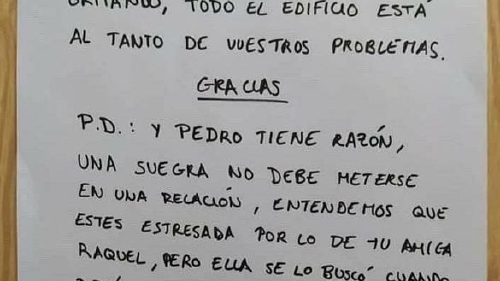 TODO EL EDIFICIO ESTÁ
AL TANTO DE VUESTROS PROBLEMAS.
GRACIAS
P.D.: Y PEDRO TIENE RAZÓN,
UNA SUEGRA NO DEBE METERSE
EN UNA RELACIÓN, ENTENDEMOS QUE
ESTES ESTRESADA POR LO DE TU AMIGA
RAQUEL, PERO ELLA SE LO BUSCÓ CUANDO